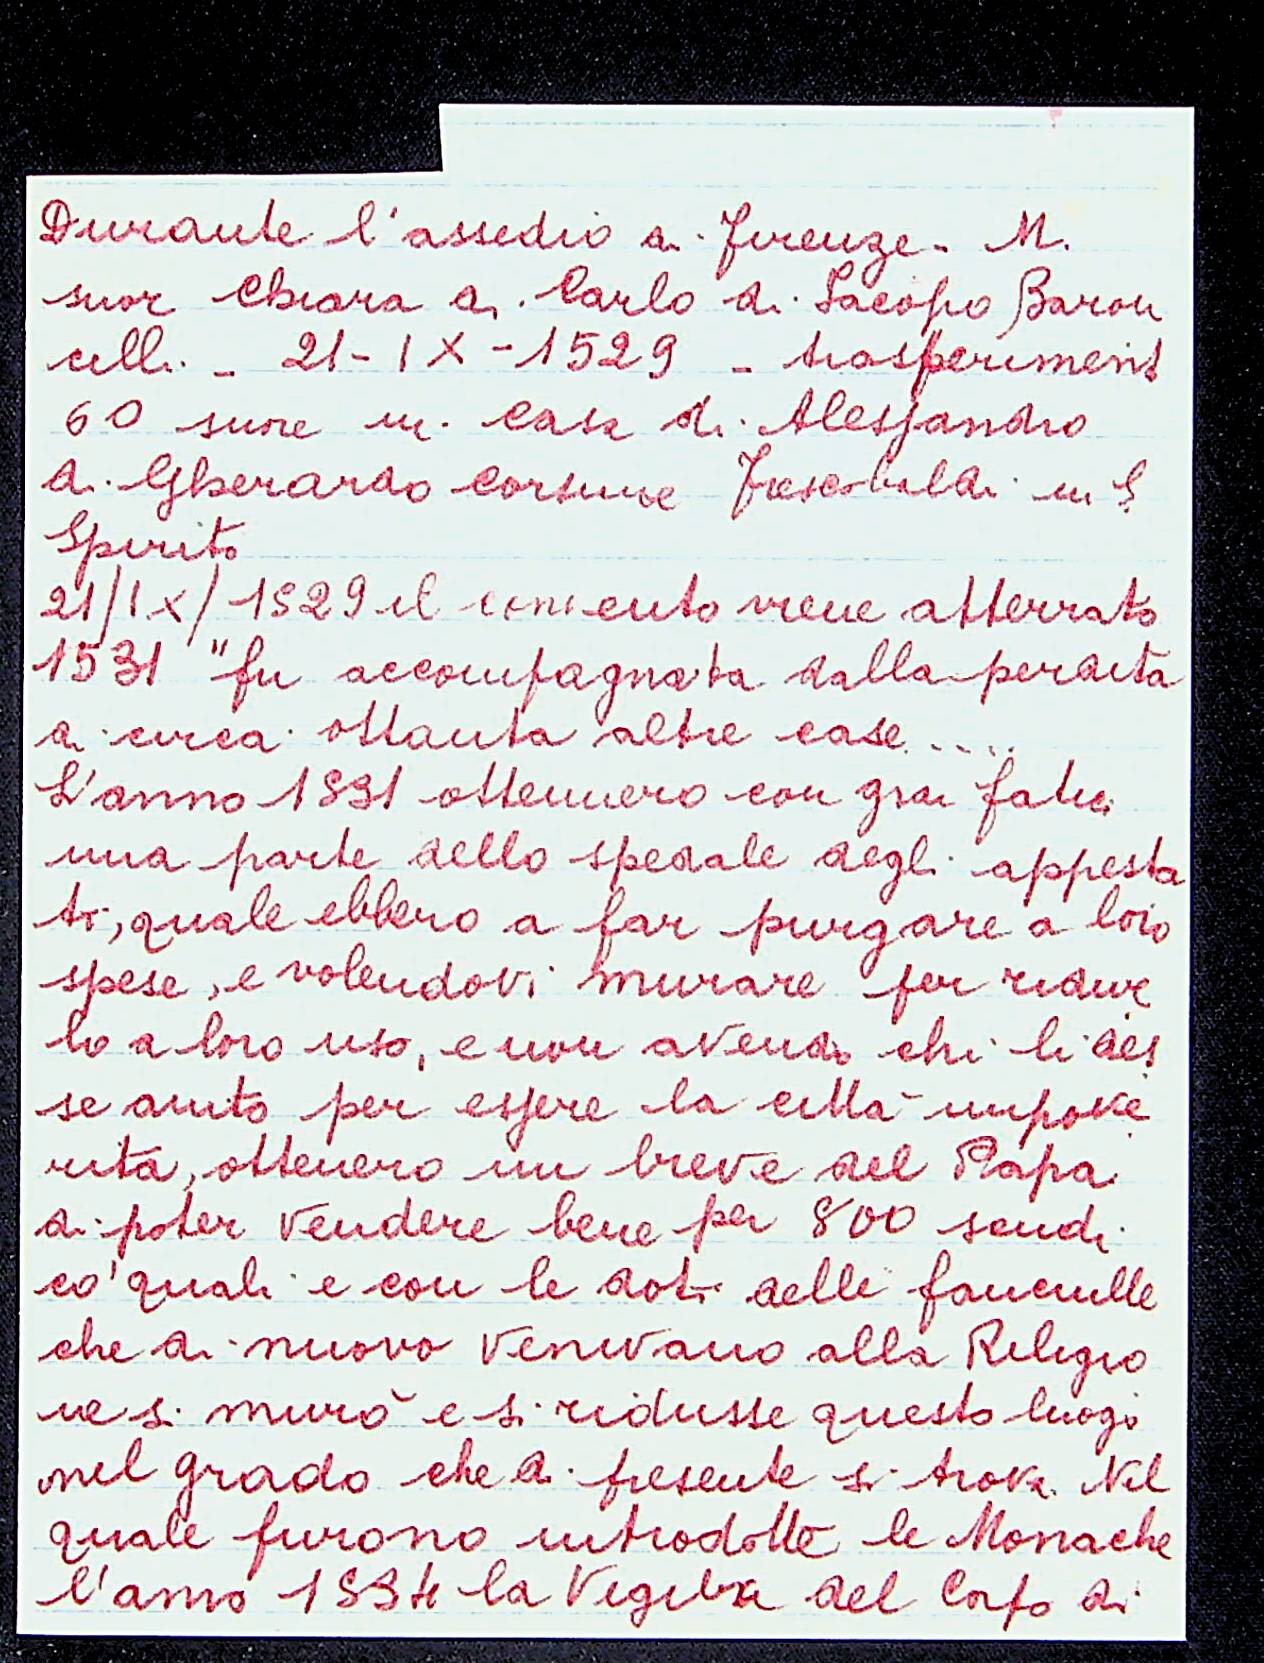 Durante l'assedio di Firenze - M.
suor Chiara di Carlo di Iacopo Baron
celli - 21-IX-1529 - trasferiment
60 suore in casa di Alessandro
di Gherardo Corsini e Frescobaldi in S
Spirito
21/IX/1529 il convento viene atterrato
1531 "fu accompagnata dalla perdita
di circa ottanta altre case.....
L'anno 1531 ottennero con gran fatica
una parte dello spedale degli appesta
ti, quale ebbero a far purgare a loro
spese, e volendovi murare per ridur
lo a loro uso, e non avendo chi li des
se aiuto per essere la città impove
rita, ottenero un breve del Papa
di poter vendere bene per 800 scudi
co' quali e con le doti delle fanciulle
che di nuovo venivano alla Religio
ne si murò e si ridusse questo luogo
nel grado che di presente si trova. Nel
quale furono introdotte le Monache
l'anno 1534 la Vigilia del Corpo di